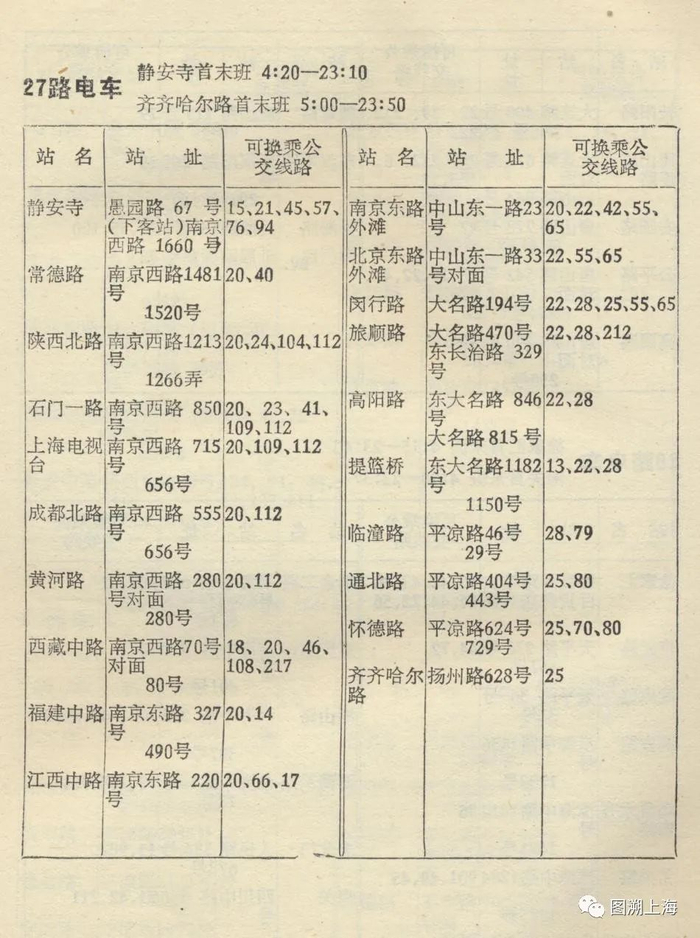 27路电车
静安寺首末班 4:20—23:10
齐齐哈尔路首末班 5:00—23:50
站 名 站 址 可换乘公
交线路
静安寺 愚园路 67 号 15、21、45、57、
(下客站)南京 76、94
西路 1660 号
常德路 南京西路1481 20、40
号
1520号
陕西北路 南京西路1213 20、24、104、112
号
1266弄
石门一路 南京西路 850 20、23、41、
号 109、112
上海电视 南京西路 715 20、109、112
台 号
656号
成都北路 南京西路 555 20、112
号
656号
黄河路 南京西路 280 20、112
号对面
280号
西藏中路 南京西路70号 18、20、46、
对面 108、217
80号
福建中路 南京东路 327 20、14
号
490号
江西中路 南京东路 220 20、66、17
号
站 名 站 址 可换乘公
交线路
南京东路 中山东一路23 20、22、42、55、
外滩 号 65
北京东路 中山东一路33 22、55、65
外滩 号对面
闵行路 大名路194号 22、28、25、55、65
旅顺路 大名路470号 22、28、212
东长治路 329
号
高阳路 东大名路 846 22、28
号
大名路815号
提篮桥 东大名路1182 13、22、28
号
1150号
临潼路 平凉路46号 28、79
29号
通北路 平凉路404号 25、80
443号
怀德路 平凉路624号 25、70、80
729号
齐齐哈尔 扬州路628号 25
路
图溯上海